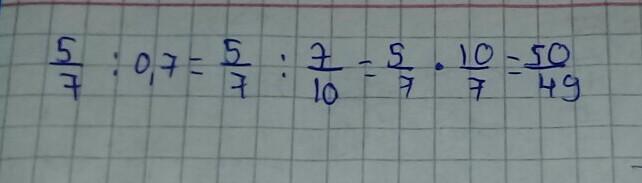 5/7 : 0,7 = 5/7 : 7/10 = 5/7 · 10/7 = 50/49